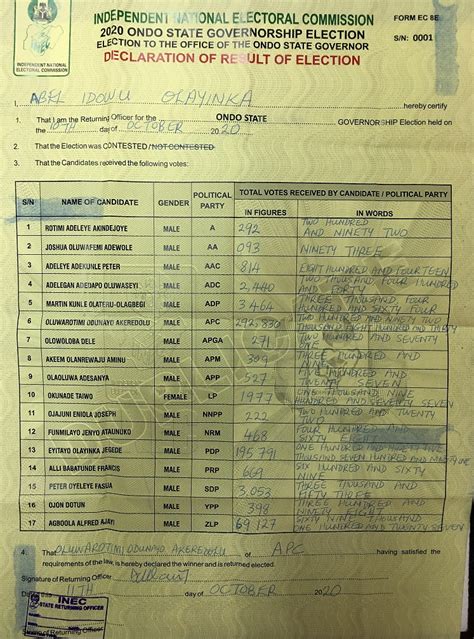 INDEPENDENT NATIONAL ELECTORAL COMMISSION
FORM EC 8E
2020 ONDO STATE GOVERNORSHIP ELECTION
ELECTION TO THE OFFICE OF THE ONDO STATE GOVERNOR
S/N: 0001
DECLARATION OF RESULT OF ELECTION
INDEPENDENT NATIONAL
ELECTORAL COMMISSION
I, ABEL IDOWU OLAYINKA hereby certify
1. That I am the Returning Officer for the ONDO STATE GOVERNORSHIP Election held on
the 10TH day of OCTOBER 2020
2. That the Election was CONTESTED / NOT CONTESTED
3. That the Candidates received the following votes:
S/N NAME OF CANDIDATE GENDER POLITICAL PARTY TOTAL VOTES RECEIVED BY CANDIDATE / POLITICAL PARTY
IN FIGURES IN WORDS
1 ROTIMI ADELEYE AKINDEJOYE MALE A 292 TWO HUNDRED AND NINETY TWO
2 JOSHUA OLUWAFEMI ADEWOLE MALE AA 093 NINETY THREE
3 ADELEYE ADEKUNLE PETER MALE AAC 814 EIGHT HUNDRED AND FOURTEEN
4 ADELEGAN ADEDAPO OLUWASEYI MALE ADC 2,440 TWO THOUSAND, FOUR HUNDRED AND FORTY
5 MARTIN KUNLE OLATERU-OLAGBEGI MALE ADP 3,464 THREE THOUSAND, FOUR HUNDRED AND SIXTY FOUR
6 OLUWAROTIMI ODUNAYO AKEREDOLU MALE APC 292,830 TWO HUNDRED AND NINETY TWO THOUSAND EIGHT HUNDRED AND THIRTY
7 OLOWOLOBA DELE MALE APGA 271 TWO HUNDRED AND SEVENTY ONE
8 AKEEM OLANREWAJU AMINU MALE APM 309 THREE HUNDRED AND NINE
9 OLAOLUWA ADESANYA MALE APP 527 FIVE HUNDRED AND TWENTY SEVEN
10 OKUNADE TAIWO FEMALE LP 1977 ONE THOUSAND NINE HUNDRED AND SEVENTY SEVEN
11 OJAJUNI ENIOLA JOSEPH MALE NNPP 222 TWO HUNDRED AND TWENTY TWO
12 FUNMILAYO JENYO ATAUNUKO MALE NRM 468 FOUR HUNDRED AND SIXTY EIGHT
13 EYITAYO OLAYINKA JEGEDE MALE PDP 195,791 ONE HUNDRED AND NINETY FIVE THOUSAND SEVEN HUNDRED AND NINETY ONE
14 ALLI BABATUNDE FRANCIS MALE PRP 669 SIX HUNDRED AND SIXTY NINE
15 PETER OYELEYE FASUA MALE SDP 3,053 THREE THOUSAND AND FIFTY THREE
16 OJON DOTUN MALE YPP 398 THREE HUNDRED AND NINETY EIGHT
17 AGBOOLA ALFRED AJAYI MALE ZLP 69,127 SIXTY NINE THOUSAND, ONE HUNDRED AND TWENTY SEVEN
4. That OLUWAROTIMI ODUNAYO AKEREDOLU of APC having satisfied the
requirements of the law, is hereby declared the winner and is returned elected.
Signature of Returning Officer
Dated this 11TH day of OCTOBER 2020
INEC
STATE RETURNING OFFICER